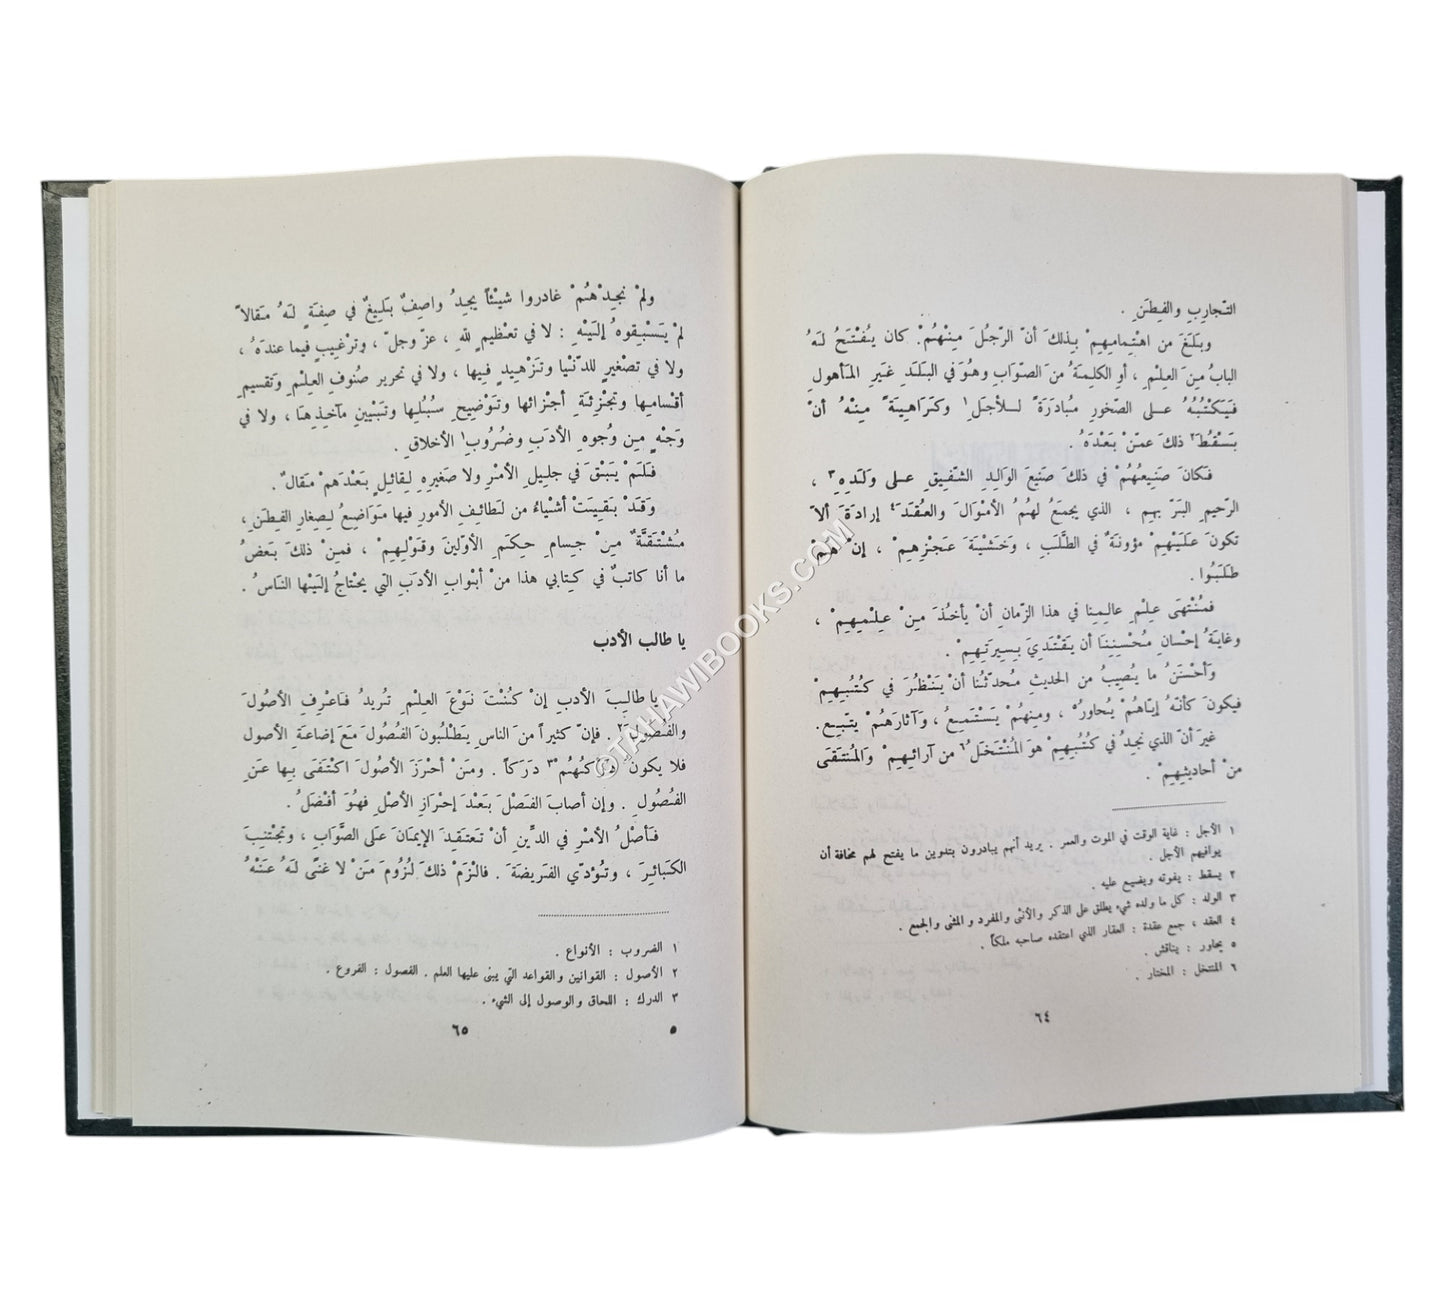 التّجاربِ والفِطَنِ .
وبَلَغَ من اهتِمامِهِمْ بِذلكَ أنّ الرّجُلَ مِنْهُمْ كان يُفْتَحُ لهُ
البابُ مِنَ العِلْمِ ، أو الكلِمَةُ منَ الصّوابِ وهُوَ في البَلَدِ غيرِ المَأهولِ
فيَكْتُبُهُ على الصّخورِ مُبادَرَةً للأجَلِ١ وكَرَاهِيَةً مِنْهُ أنْ
يَسْقُطَ٢ ذلكَ عمّنْ بَعْدَهُ .
فكانَ صَنِيعُهُمْ في ذلكَ صَنيعَ الوالِدِ الشّفيقِ على وَلَدِهِ٣ ،
الرّحيمِ البَرّ بهِم ، الذي يجمَعُ لهُمُ الأمْوَالَ والعُقَدَ٤ إرادَةَ ألاّ
تكونَ علَيْهِمْ مؤونَةٌ في الطّلَبِ ، وخَشْيَةَ عَجْزِهِمْ ، إنْ هُمْ
طلَبُوا .
فمُنْتَهَى عِلْمِ عالِمِنا في هذا الزّمانِ أنْ يأخُذَ مِنْ عِلْمِهِمْ ،
وغايَةُ إحْسانِ مُحْسِنِنَا أن يَقْتَدِيَ بسِيرَتِهِمْ .
وَأحْسَنُ ما يُصِيبُ من الحَديثِ مُحدّثُنا أنْ يَنْظُرَ في كُتُبِهِمْ
فيكونَ كأنّهُ إيّاهُمْ يُحاورُ٥ ، ومِنهُمْ يَسْتَمِعُ ، وَآثارَهُمْ يتّبِع .
غيرَ أنّ الذي نجِدُ في كُتُبِهِمْ هوَ المُنْتَخَلُ٦ من آرائِهِمْ وَالمُنتَقَى
منْ أحاديثِهِمْ .
١ الأجل : غاية الوقت في الموت والعمر . يريد أنهم يبادرون بتدوين ما يفتح لهم مخافة أن
يوافيهم الأجل .
٢ يسقط : يفوته ويضيع عليه .
٣ الولد : كل ما ولده شيء يطلق على الذكر والأنثى والمفرد و المثنى والجمع .
٤ العقد ، جمع عقدة : العقار الذي اعتقده صاحبه ملكاً .
٥ يحاور : يناقش .
٦ المنتخل : المختار .
٦٤
ولمْ نجِدْهُمْ غادروا شيْئاً يجِدُ واصِفٌ بَليغٌ في صِفَةٍ لَهُ مَقالاً
لمْ يَسْبِقوهُ إلَيْهِ : لا في تعْظيمٍ للهِ ، عزّ وجلّ ، وترْغيبٍ فيما عندَهُ ،
ولا في تصْغيرٍ للدّنْيا وتَزْهيدٍ فيها ، ولا في تحرير صُنوفِ العِلْمِ وَتقسيمِ
أقسامِها وتجْزِئَةِ أجْزائها وتَوْضيحِ سُبُلِها وتبْيِينِ مآخِذِها ، ولا في
وَجْهٍ مِن وُجوهِ الأدَبِ وضُرُوبِ١ الأخلاقِ .
فلَمْ يَبْقَ في جليلِ الأمْرِ ولا صَغيرِهِ لِقائِلٍ بَعْدَهمْ مَقالٌ .
وَقدْ بقِيَتْ أشْياءُ من لَطائِفِ الأمورِ فيها مَوَاضِعُ لِصِغارِ الفِطَنِ ،
مُشْتَقّةٌ مِنْ جِسامِ حِكَمِ الأوّلينَ وقَوْلِهِمْ ، فمِنْ ذلكَ بَعضُ
ما أنا كاتبٌ في كِتابي هذا منْ أبْوابِ الأدَبِ الّتي يحْتاجُ إلَيْها النّاسُ .
يا طالب الأدب
يا طالِبَ الأدبِ إنْ كُنْتَ نَوْعَ العِلْمِ تُريدُ فاعْرِفِ الأصُولَ
والفُصُولَ٢ . فإنّ كثيراً من النّاسِ يَطْلُبُونَ الفُصُولَ مَعَ إضاعَةِ الأصول
فلا يكونُ دَرَكُهُمْ٣ دَرَكاً . ومَنْ أحْرَزَ الأصُولَ اكْتَفَى بِها عَنِ
الفُصُولِ . وإن أصابَ الفَصْلَ بَعْدَ إحْرَازِ الأصْلِ فهُوَ أفْضَلُ .
فأصْلُ الأمْرِ في الدِّينِ أنْ تَعتَقِدَ الإيمَانَ عَلى الصَّوَابِ ، وتَجْتَنِبَ
الكَبائِرَ ، وتُؤدّيَ الفَريضَةَ . فالْزَمْ ذلكَ لُزُومَ مَنْ لا غنًى لَهُ عَنْهُ
١ الضروب : الأنواع .
٢ الأصول : القوانين والقواعد التي يبنى عليها العلم . الفصول : الفروع .
٣ الدرك : اللحاق والوصول إلى الشيء .
٥
٦٥
OTAHAWIBOOKS.COM